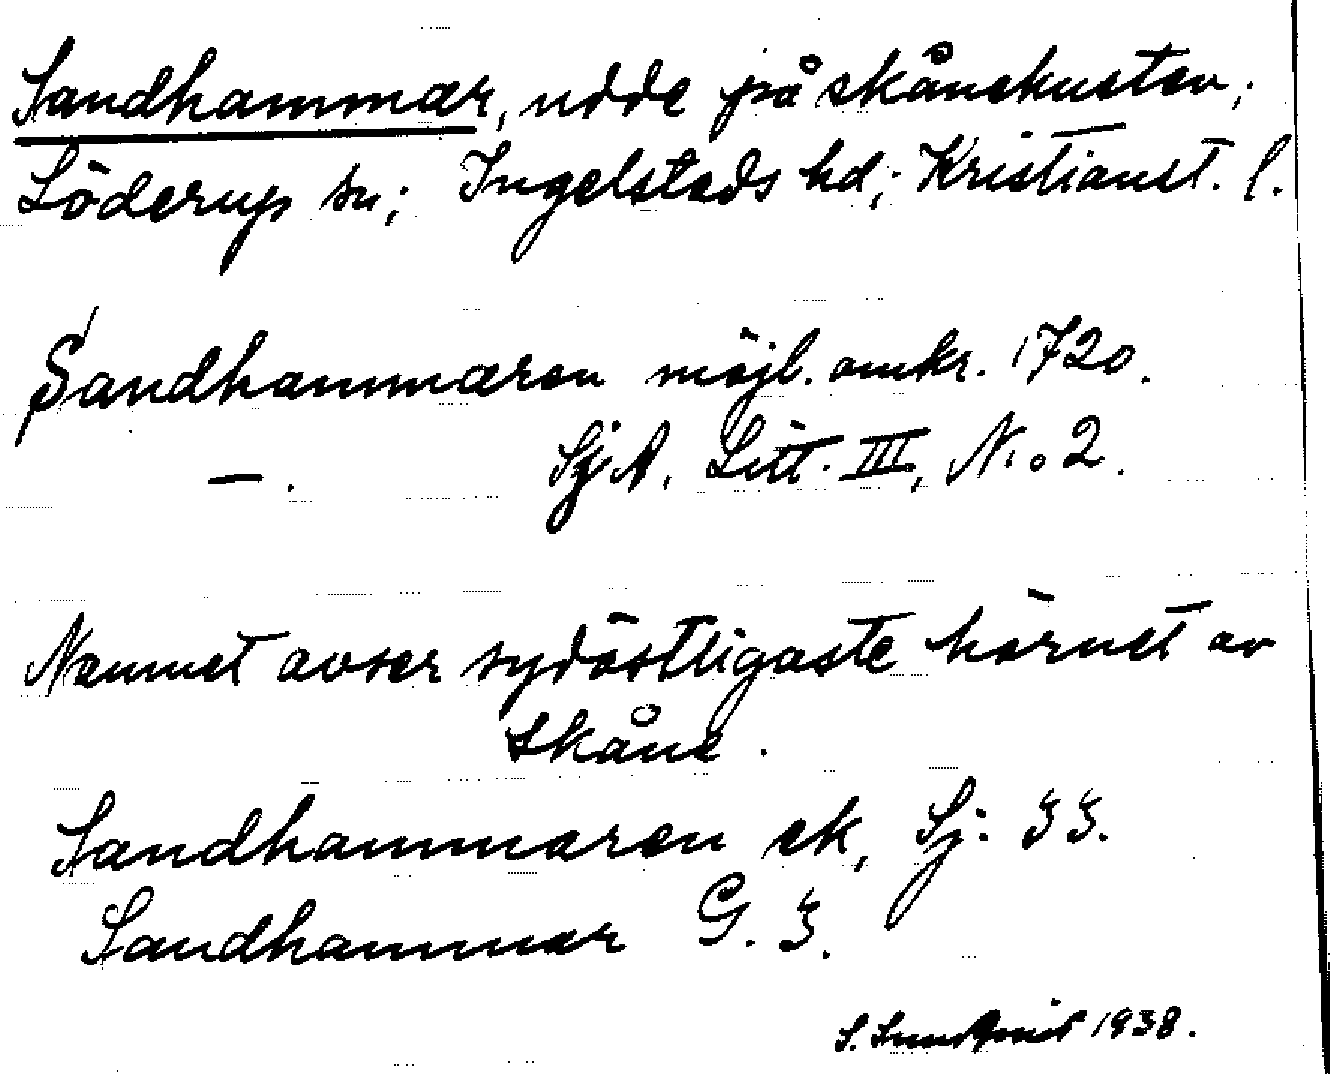 Sandhammar, udde på skånekusten;
Löderup sn; Ingelstads hd; Kristianst. l.
Sandhammaren möjl. omkr. 1720.
—. Sj A. Litt. III, N:o 2.
Namnet avser sydöstligaste hörnet av
Skåne.
Sandhammaren ek, Sj. 33.
Sandhammar G. 3.
S. 1938.